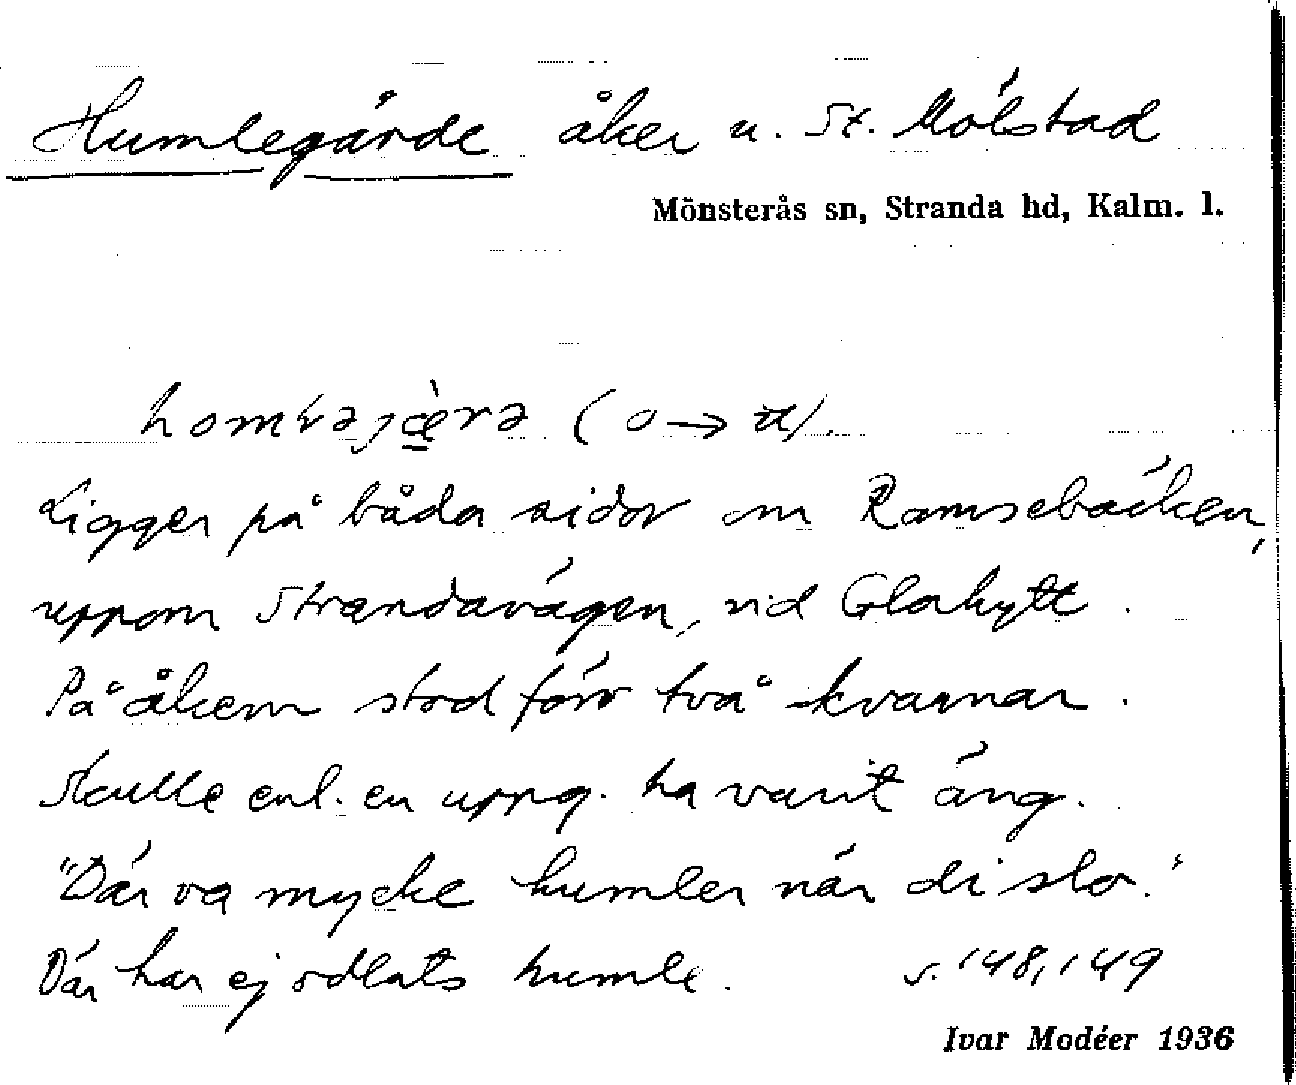 Humlegärde åker u. St. Mölstad
Mönsterås sn, Stranda hd, Kalm. l.
Ligger på båda sidor om Ramsebäcken,
uppom Strandavägen, vid Glahytt.
På åkern stod förr två kvarnar.
Skulle enl. en uppg. ha varit äng.
"Där va mycke humler när di slo."
Där har ej odlats humle. s. 148, 149
Ivar Modéer 1936